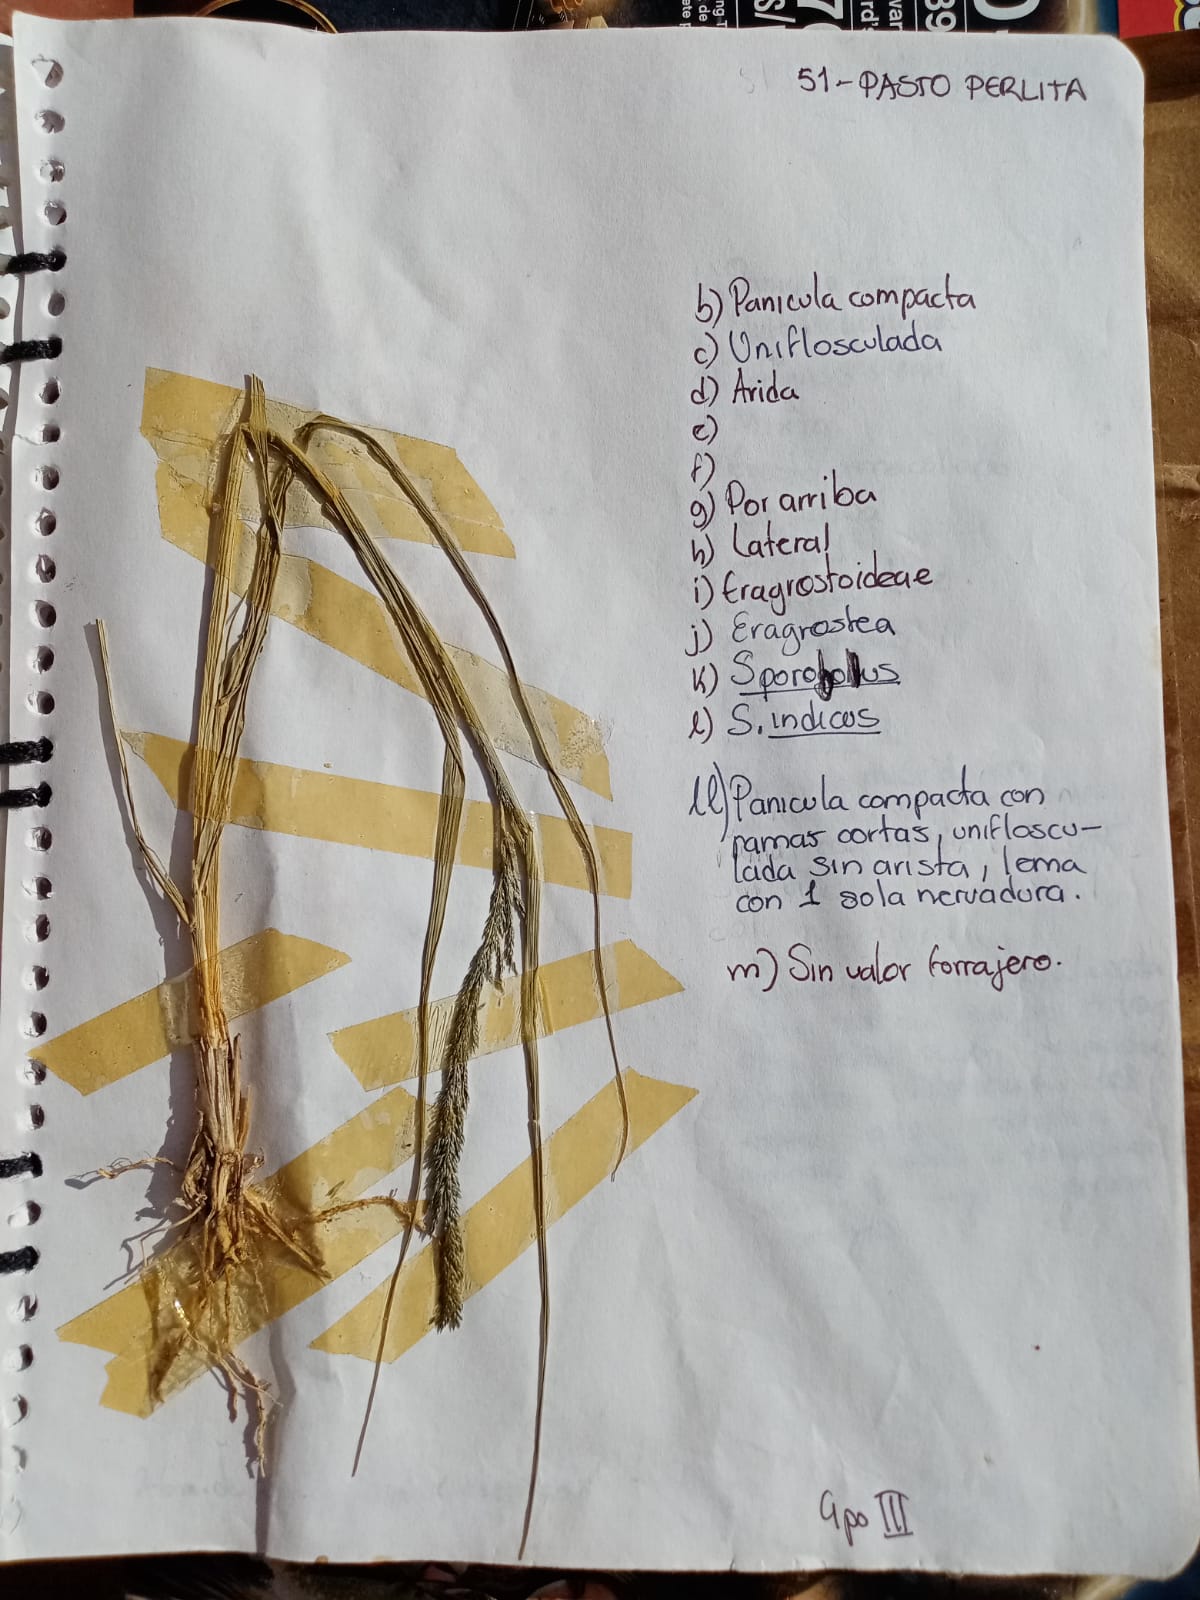 51-PASTO PERLITA
b) Panicula compacta
c) Uniflosculada
d) Arida
e)
f)
g) Por arriba
h) Lateral
i) Eragrostoideae
j) Eragrostea
k) Sporobollus
l) S. indicus
ll) Panicula compacta con
ramas cortas, unifloscu-
lada sin arista, lema
con 1 sola nervadura.
m) Sin valor forrajero.
Gpo III